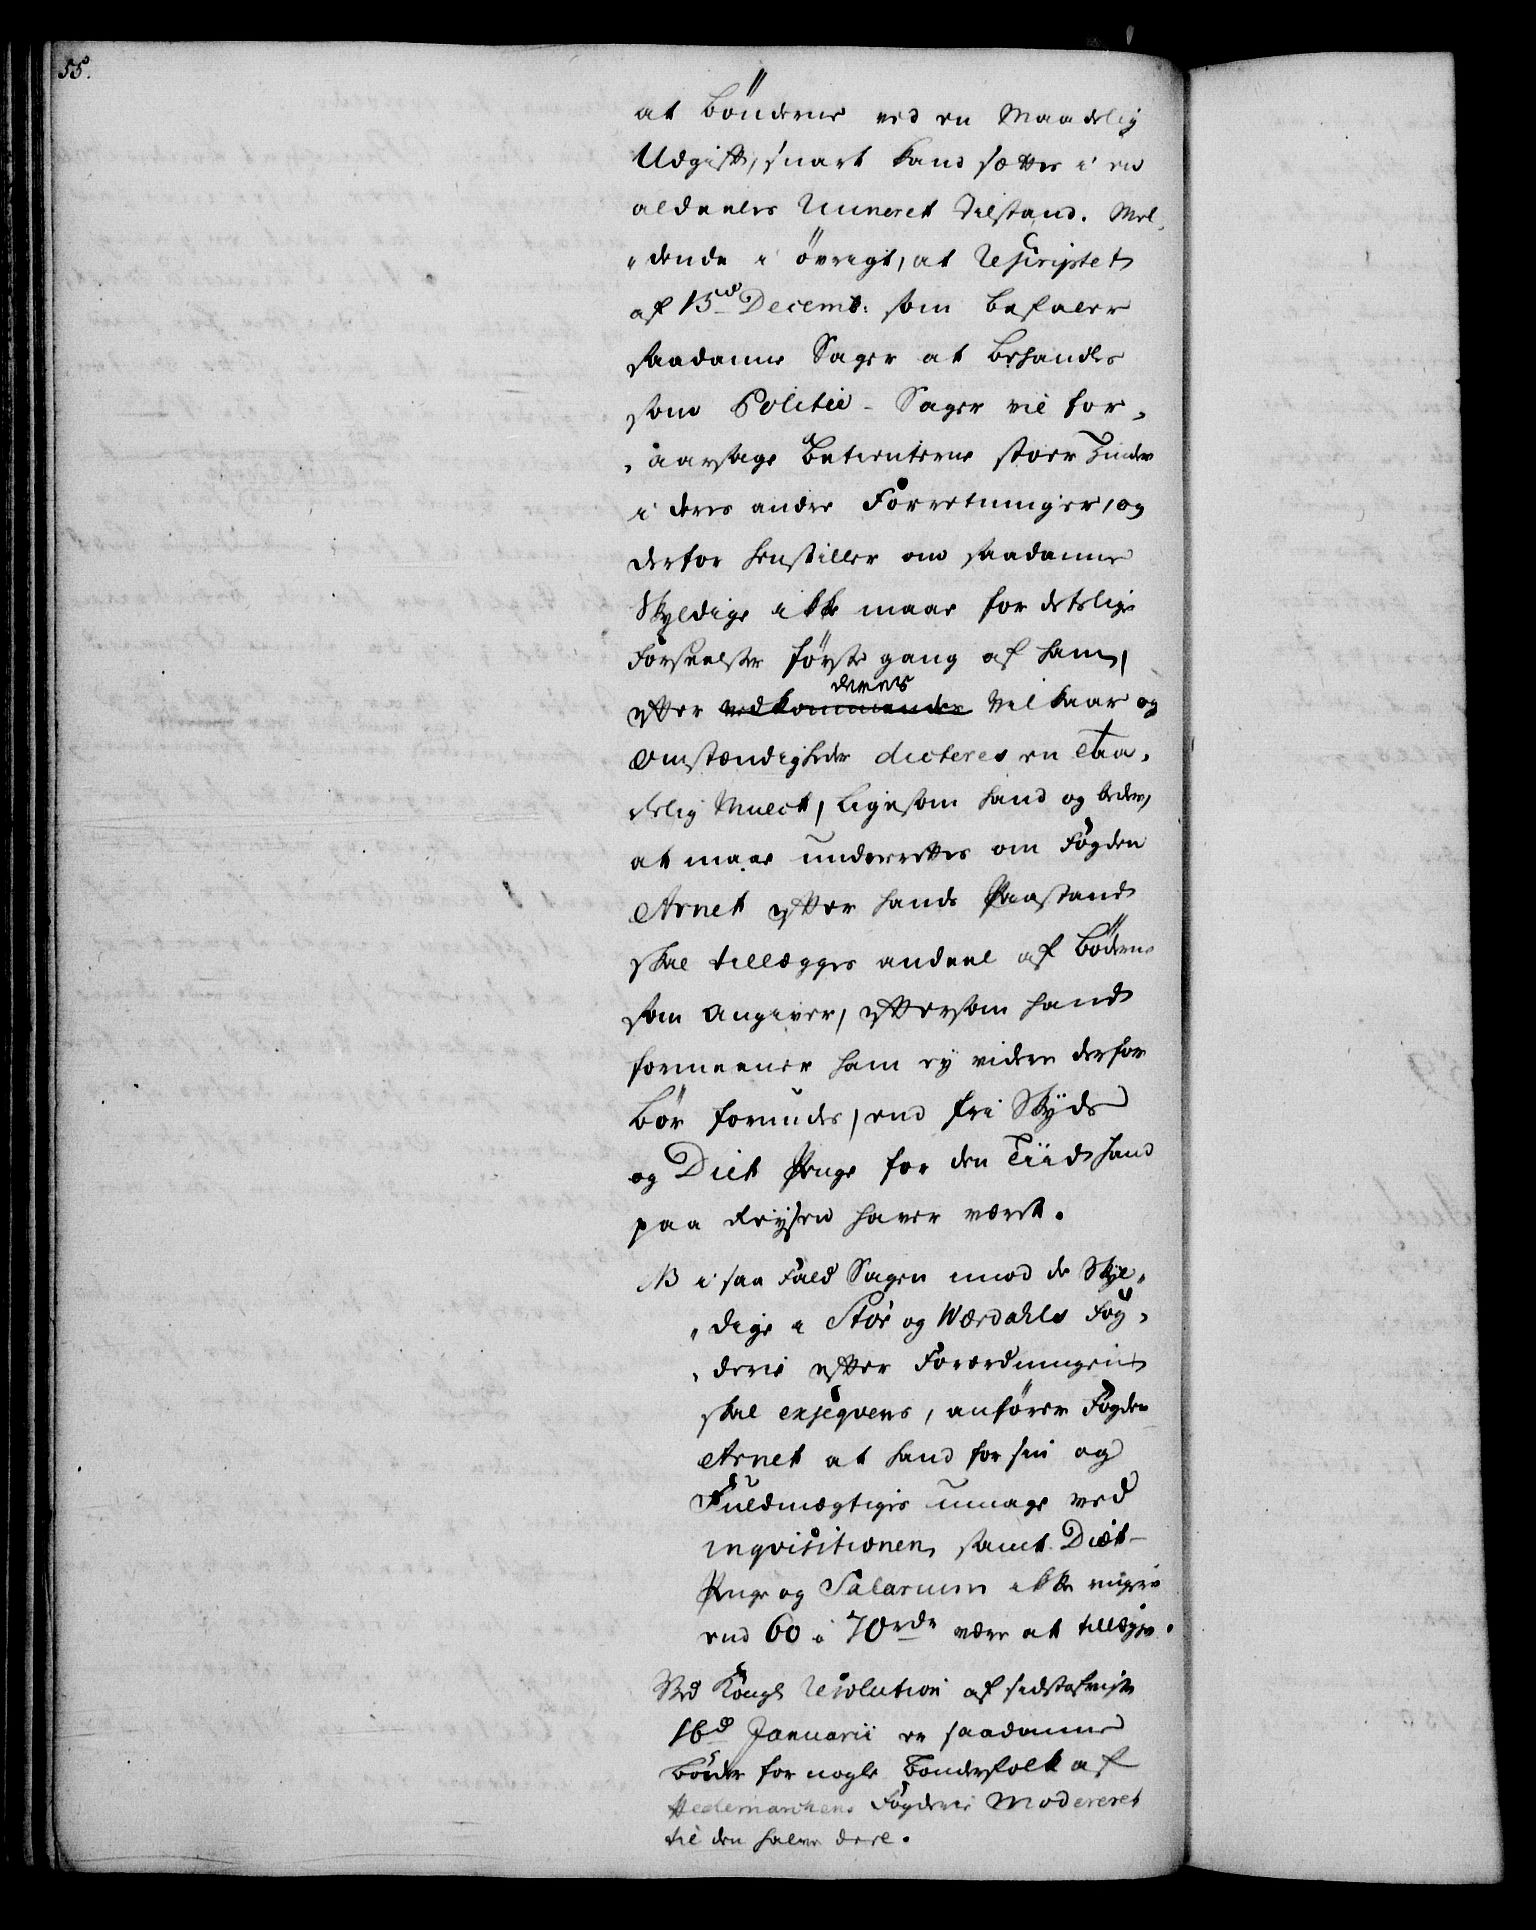 55.
at Bönderne ved en Maadelig
Udgift, snart kand sættes i en
aldeeles Ruineret Tilstand. Mel„
„dende i övrigt, at Rescriptet
af 15de Decemb: som befaler
saadanne Sager at behandles
som Politie-Sager vil for„
„aarsage Betienterne stoer Hinder
i deres andre Forretninger, og
derfor henstiller om saadanne
Skyldige ikke maae for detslige
Forseelser förste gang af ham,
deres
efter vedkommendes Vilkaar og
Omstændigheder dicteres en taa„
delig Mulct, ligesom hand og beder,
at maae underrettes om Fogden
Arnet efter hands Paastand
skal tillægges andeel af Böderne
som Angiver, eftersom hand
formeener ham ey videre derfor
bör forundes, end fri Skyds
og Diet Penge for den Tiid hand
paa Reysen haver været.
NB i saa Fald Sagen imod de Skyl„
„dige i Stör og Wærdahls Fog„
„derie efter Forordningen
skal exseqveres, anförer Fogden
Arnet at hand for sin og
Fuldmægtiges umage ved
inqvisitionen samt Diæt-
Penge og Salarium ikke ringere
end 60 à 70 rdr være at tillægge.
Ved Kongl Resolution af sidstafvigte
16d Januarii er saadanne
Böder for nogle Bonderfolk af
Hedemarchens Fogderie Modereret
til den halve deel.